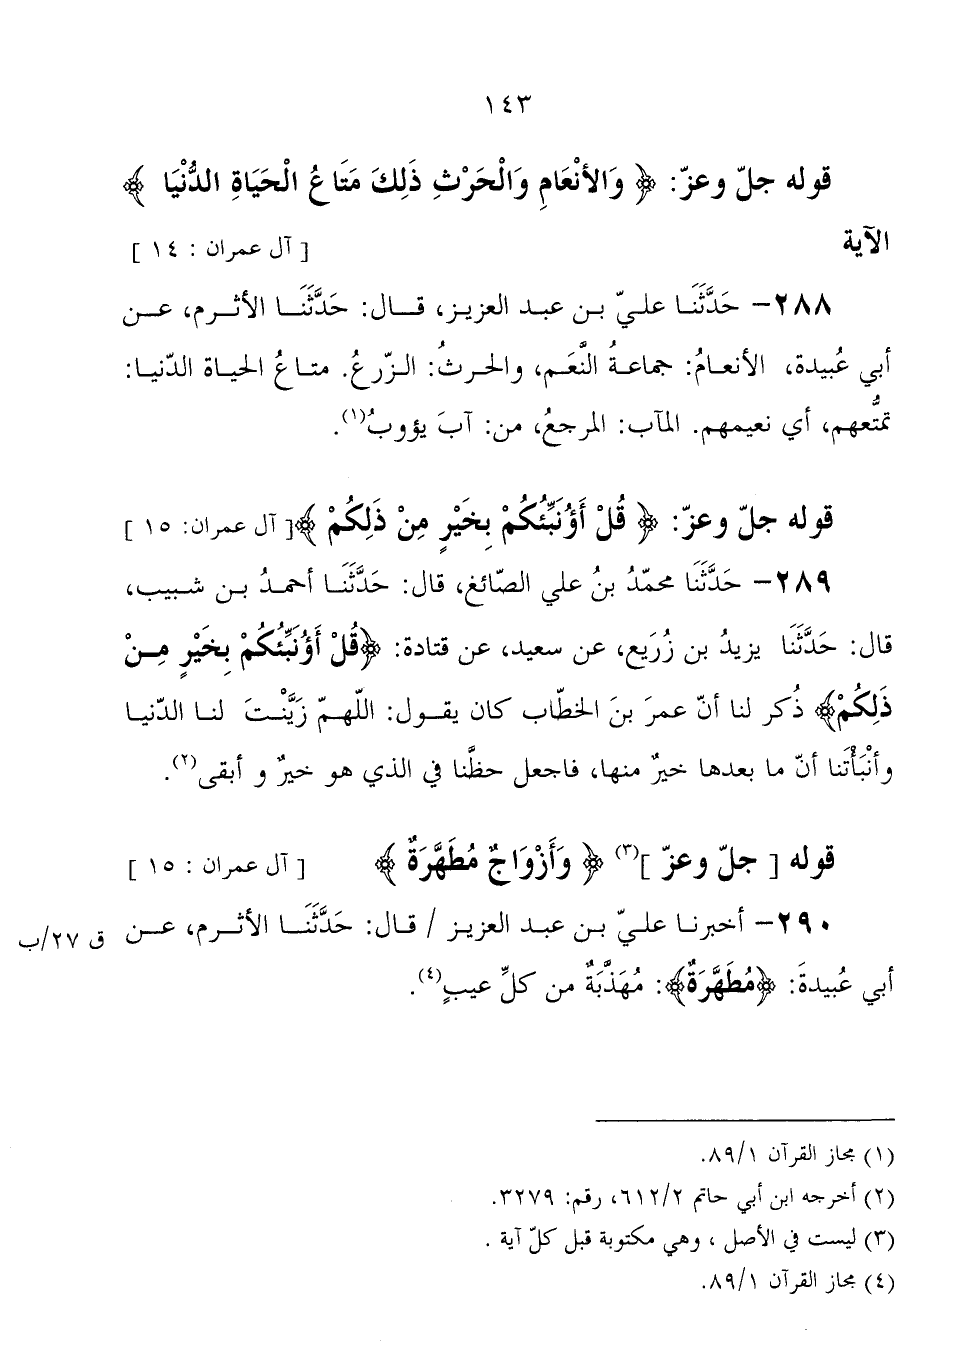 ١٤٣
قوله جلّ وعزّ: ﴿ وَالأَنْعَامِ وَالْحَرْثِ ذَلِكَ مَتَاعُ الْحَيَاةِ الدُّنْيَا ﴾
الآية [ آل عمران : ١٤ ]
٢٨٨– حَدَّثَنَا عليّ بن عبد العزيز، قال: حَدَّثَنَا الأثرم، عن
أبي عُبيدة، الأنعامُ: جماعةُ النَّعَم، والحرثُ: الزّرعُ. متاعُ الحياة الدّنيا:
تمتُّعهم، أي نعيمهم. المآب: المرجعُ، من: آبَ يؤوبُ(١).
قوله جلّ وعزّ: ﴿ قُلْ أَؤُنَبِّئُكُمْ بِخَيْرٍ مِنْ ذَلِكُمْ ﴾[ آل عمران: ١٥ ]
٢٨٩– حَدَّثَنَا محمّدُ بنُ علي الصّائغ، قال: حَدَّثَنَا أحمدُ بن شبيب،
قال: حَدَّثَنَا يزيدُ بن زُرَيع، عن سعيد، عن قتادة: ﴿قُلْ أَؤُنَبِّئُكُمْ بِخَيْرٍ مِنْ
ذَلِكُمْ﴾ ذُكر لنا أنّ عمرَ بنَ الخطّاب كان يقول: اللّهمّ زَيَّنْتَ لنا الدّنيا
وأنْبَأْتَنا أنّ ما بعدها خيرٌ منها، فاجعل حظَّنا في الذي هو خيرٌ و أبقى(٢).
قوله [ جلّ وعزّ ](٣) ﴿ وَأَزْوَاجٌ مُطَهَّرَةٌ ﴾ [ آل عمران : ١٥ ]
٢٩٠– أخبرنا عليّ بن عبد العزيز / قال: حَدَّثَنَا الأثرم، عن ق ٢٧/ب
أبي عُبيدةَ: ﴿مُطَهَّرَةٌ﴾: مُهَذَّبَةٌ من كلِّ عيبٍ(٤).
(١) مجاز القرآن ٨٩/١.
(٢) أخرجه ابن أبي حاتم ٦١٢/٢، رقم: ٣٢٧٩.
(٣) ليست في الأصل ، وهي مكتوبة قبل كلّ آية .
(٤) مجاز القرآن ٨٩/١.